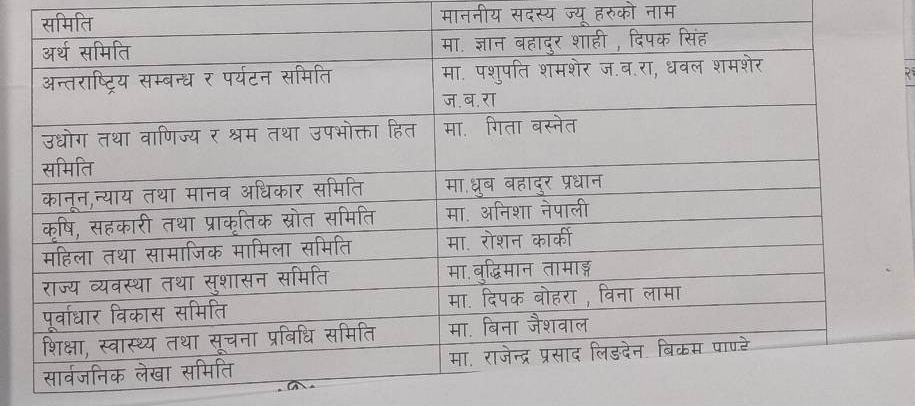 समिति
माननीय सदस्य ज्यू हरुको नाम
अर्थ समिति
मा. ज्ञान बहादुर शाही , दिपक सिंह
अन्तराष्ट्रिय सम्बन्ध र पर्यटन समिति
मा. पशुपति शमशेर ज.ब.रा, धवल शमशेर
ज.ब.रा
उधोग तथा वाणिज्य र श्रम तथा उपभोक्ता हित
समिति
मा. गिता बस्नेत
कानून,न्याय तथा मानव अधिकार समिति
मा.ध्रुब बहादुर प्रधान
कृषि, सहकारी तथा प्राकृतिक स्रोत समिति
मा. अनिशा नेपाली
महिला तथा सामाजिक मामिला समिति
मा. रोशन कार्की
राज्य व्यवस्था तथा सुशासन समिति
मा.बुद्धिमान तामाङ्ग
पूर्वाधार विकास समिति
मा. दिपक बोहरा , विना लामा
शिक्षा, स्वास्थ्य तथा सूचना प्रबिधि समिति
मा. बिना जैशवाल
सार्वजनिक लेखा समिति
मा. राजेन्द्र प्रसाद लिङदेन बिकम पाण्डे